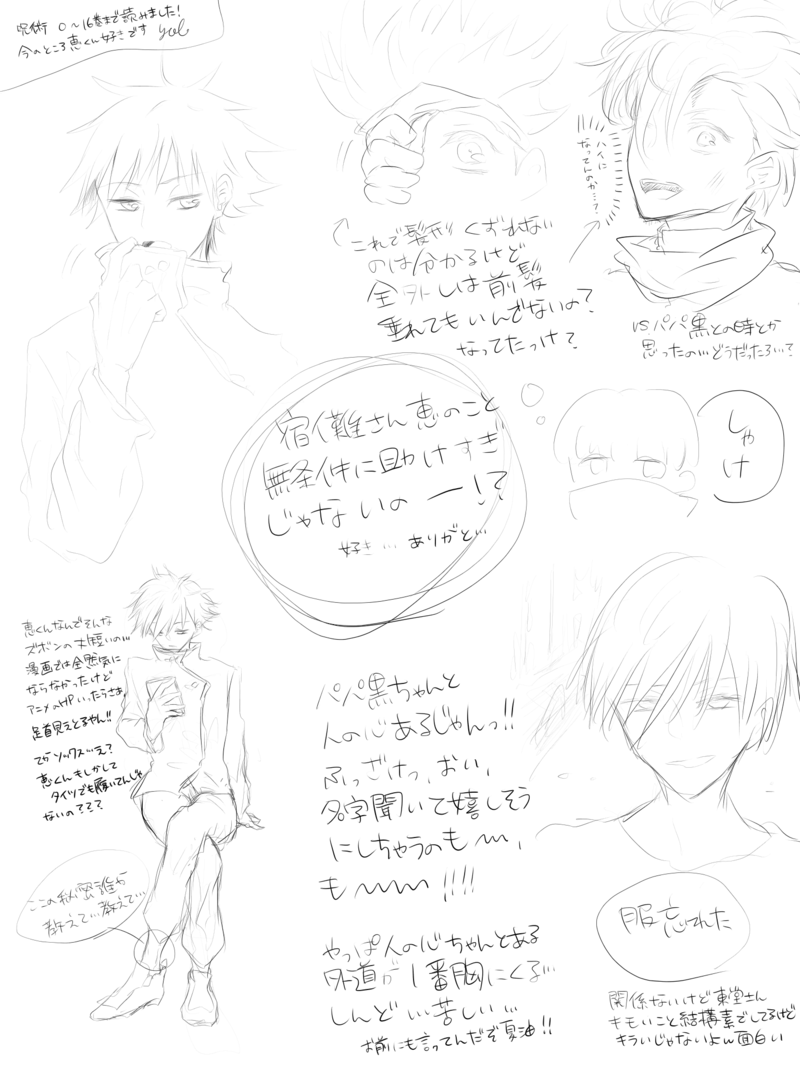 呪術 0〜16巻まで読みました!
今のところ恵くん好きです yul
ハイに
なってんのか…?
これで髪形くずれない
のは分かるけど
全外しは前髪
垂れてもいんでないの?
なってたっけ?
VSパパ黒との時とか
思ったの…どうだったろ…?
宿儺さん恵のこと
無条件に助けすぎ
じゃないのー!?
好き… ありがと…
しゃけ
恵くんなんでそんな
ズボンの丈短いの…
漫画では全然気に
ならなかったけど
アニメのHPいったらさぁ
足首見えとるやん!!
てかソックス…え?
恵くんもしかして
タイツでも履いてんじゃ
ないの???
ここの秘密誰か
教えて…教えて…
パパ黒ちゃんと
人の心あるじゃんっ!!
ふっざけっ、おい、
名字聞いて嬉しそう
にしちゃうのも〜、
も〜〜!!!!
やっぱ人の心ちゃんとある
外道が1番胸にくる…
しんど…苦しい…
お前にも言ってんだぞ夏油!!
服忘れた
関係ないけど東堂さん
キモいこと結構素でしてるけど
キライじゃないよw面白い